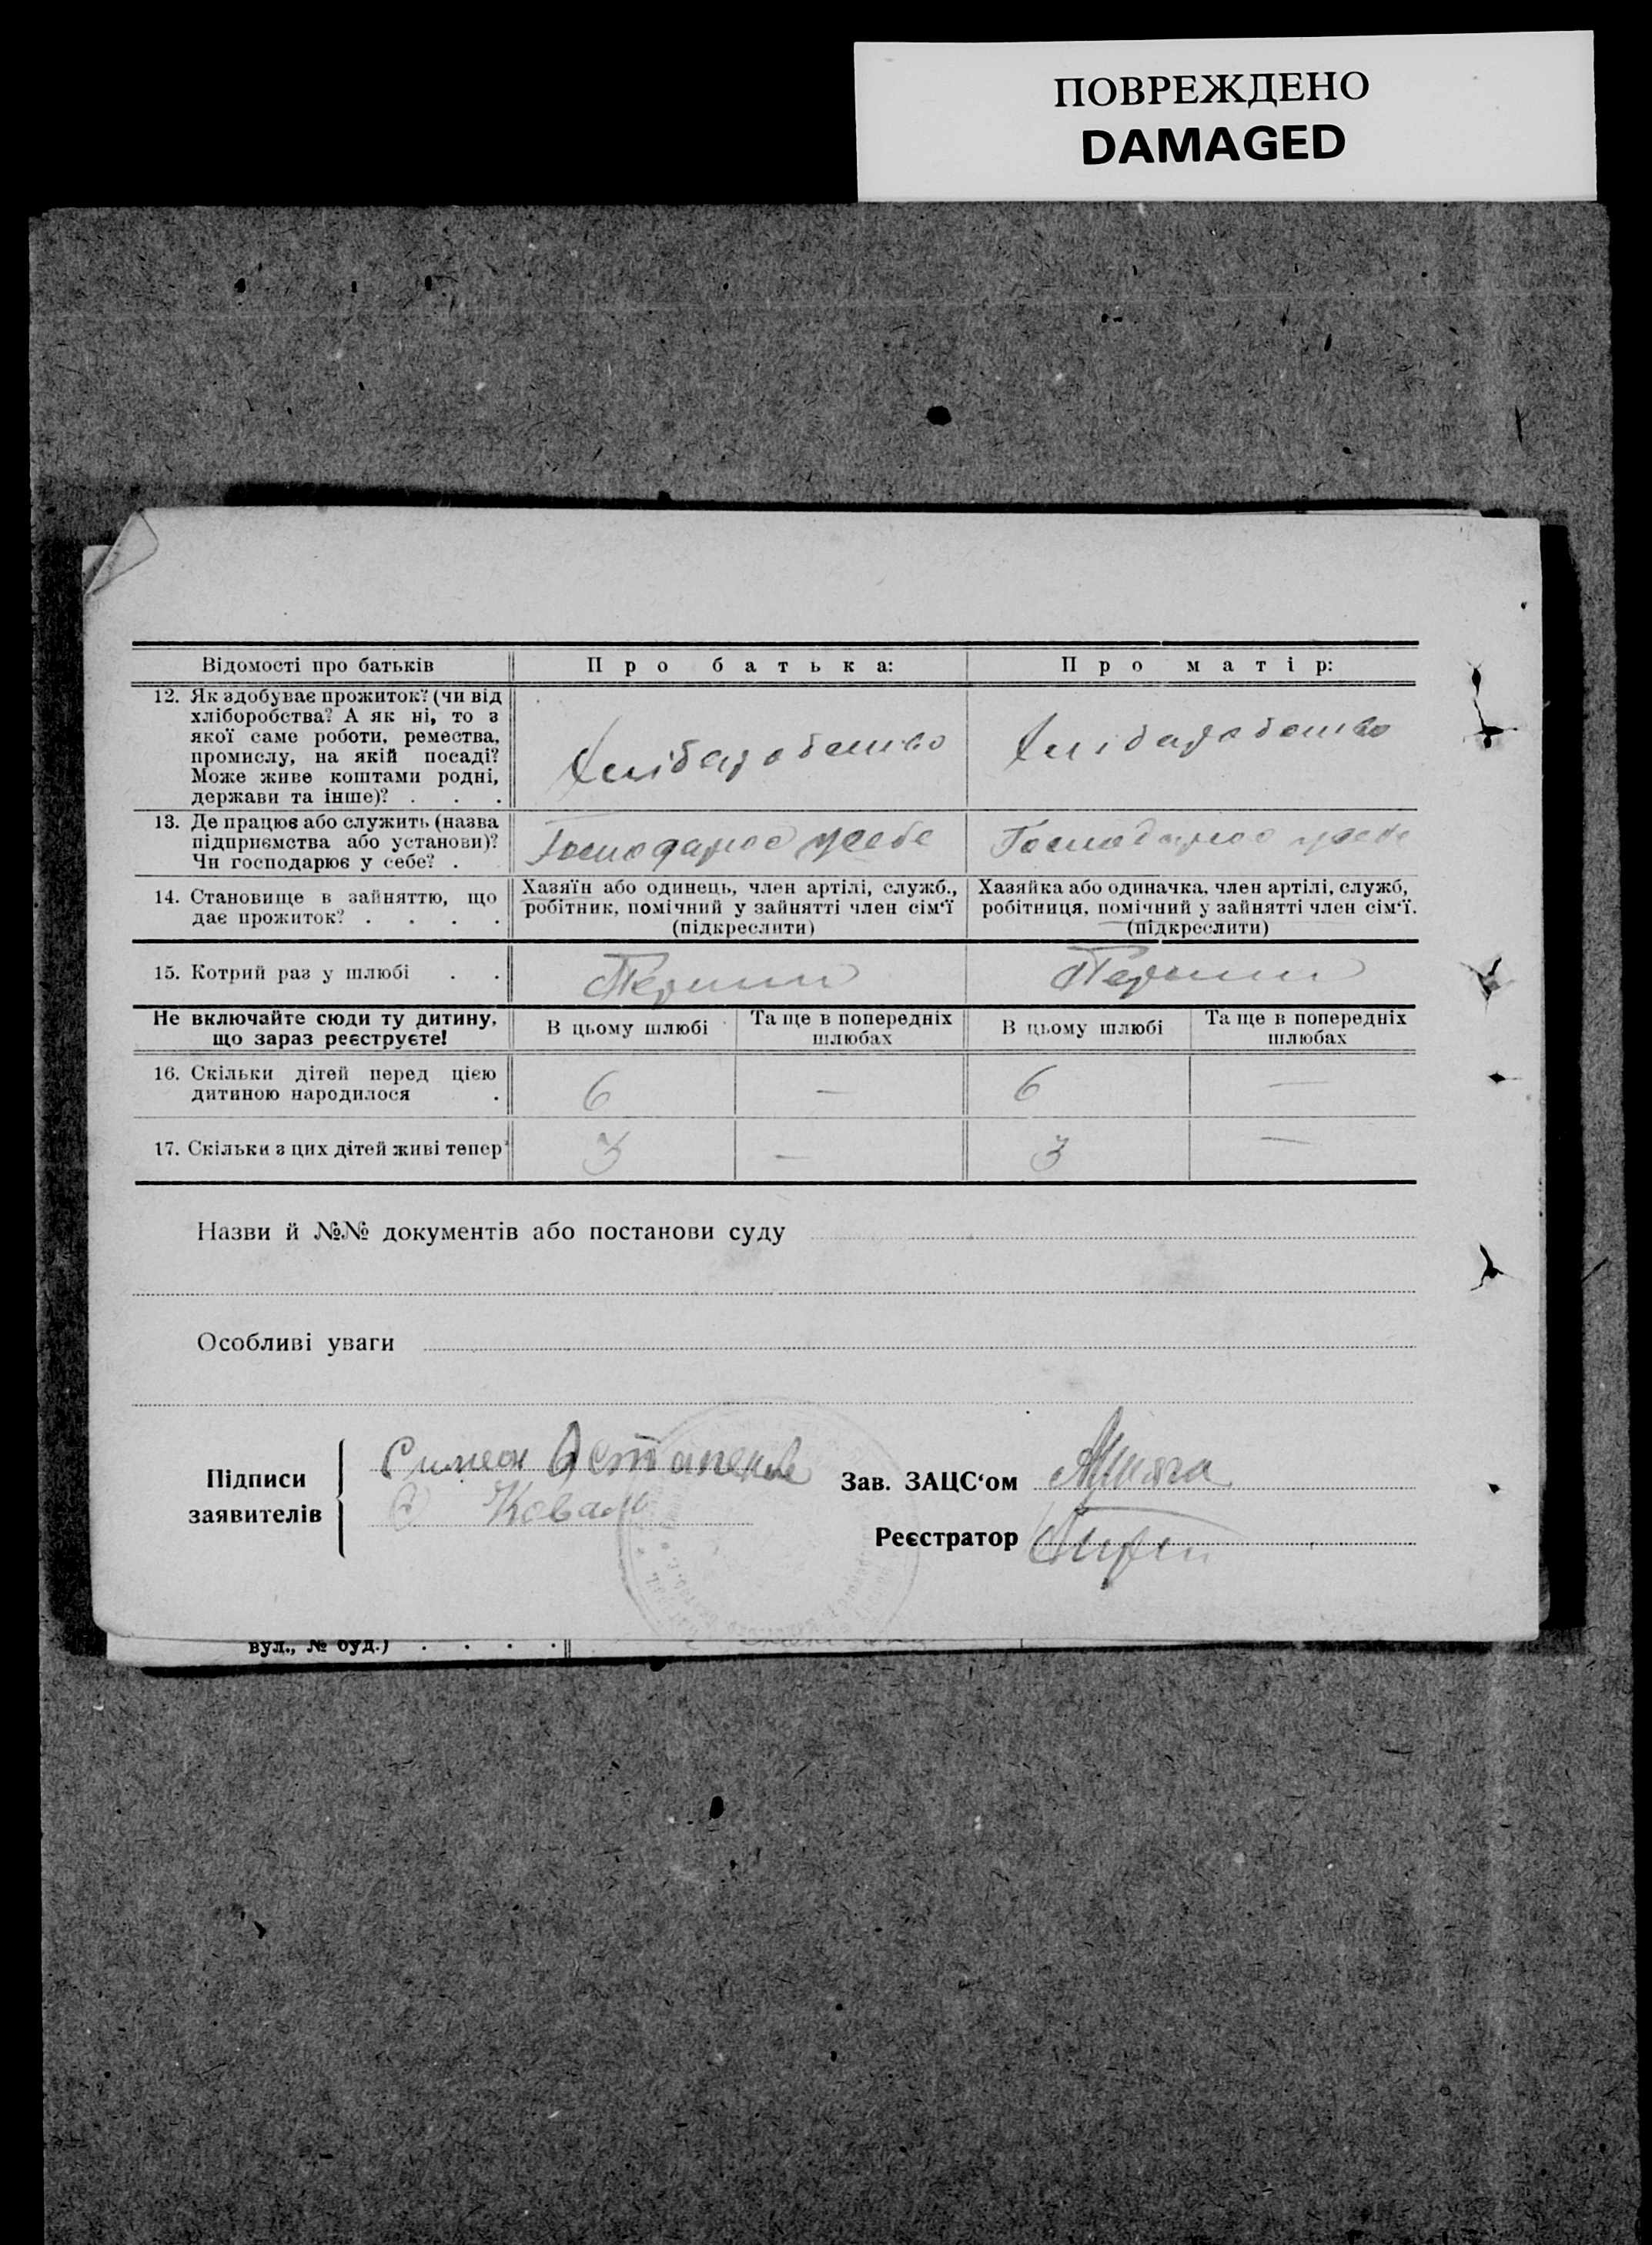 ПОВРЕЖДЕНО
DAMAGED
Відомості про батьків
Про батька:
Про матір:
12. Як здобуває прожиток? (чи від
хліборобства? А як ні, то з
якої саме роботи, ремества,
промислу, на якій посаді?
Може живе коштами родні,
держави та інше)? . . .
Хлібаробство
Хлібаробство
13. Де працює або служить (назва
підприємства або установи)?
Чи господарює у себе? .
Господарює у себе
Господарює у себе
14. Становище в зайняттю, що
дає прожиток? . . . .
Хазяїн або одинець, член артілі, служб.,
робітник, помічний у зайнятті член сім'ї
(підкреслити)
Хазяйка або одиначка, член артілі, служб,
робітниця, помічний у зайнятті член сім'ї.
(підкреслити)
15. Котрий раз у шлюбі . .
Перший
Перший
Не включайте сюди ту дитину,
що зараз реєструєте!
В цьому шлюбі
Та ще в попередніх
шлюбах
В цьому шлюбі
Та ще в попередніх
шлюбах
16. Скільки дітей перед цією
дитиною народилося .
6
—
6
—
17. Скільки з цих дітей живі тепер
3
—
3
—
Назви й №№ документів або постанови суду
Особливі уваги
Підписи
заявителів
Симеон Остапенко
Коваль
Зав. ЗАЦС'ом
Реєстратор
вул., № буд.) . . . .